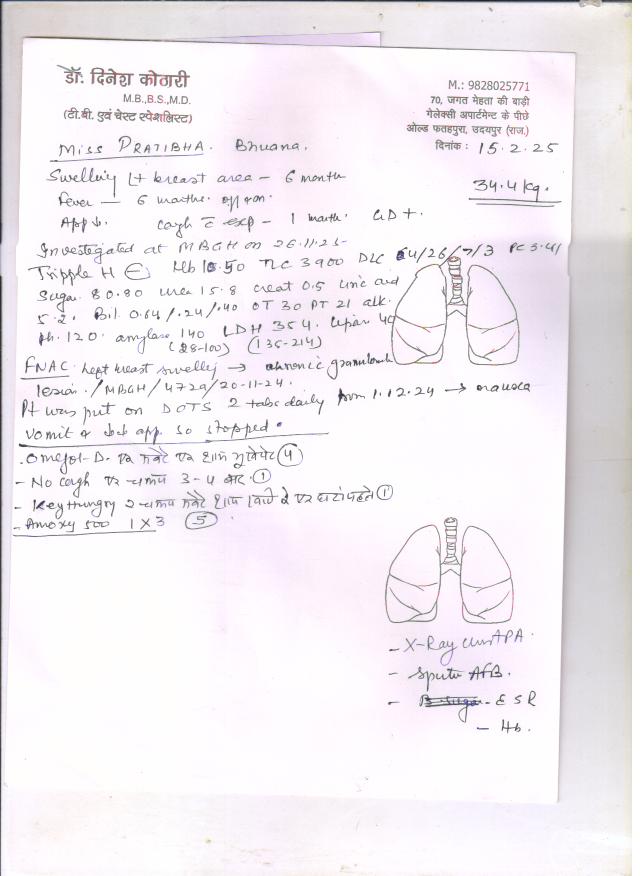 डॉ. दिनेश कोठारी
M.B.,B.S.,M.D.
(टी.बी. एवं चेस्ट स्पेशलिस्ट)
M.: 9828025771
70, जगत मेहता की बाड़ी
गेलेक्सी अपार्टमेन्ट के पीछे
ओल्ड फतहपुरा, उदयपुर (राज.)
दिनांक : 15.2.25
Miss PRATIBHA. Bhuana.
34.4 kg.
Swelling Lt breast area - 6 month
Fever - 6 months. off & on.
App ↓. cough c exp - 1 month. GD+.
Investigated at MBGH on 26.11.25-
Tripple H (-) Hb 10.50 TLC 3900 DLC 64/26/7/3 PC 3.41
Sugar 80.80 urea 15.8 creat 0.5 uric acid
5.2. Bil. 0.64/.24/.40 OT 30 PT 21 alk.
Ph. 120. amylase 140 LDH 354. Lipase 40
(28-100) (135-214)
FNAC. Left breast swelling → chronic granulomatous
lesion. /MBGH/4729/20-11-24.
Pt was put on DOTS 2 tabs daily from 1.12.24 → nausea
Vomit & app. so stopped.
. Omejol-D. एक सवेरे एक शाम भूखे पेट (4)
- No cough एक चम्मच 3-4 बार. (1)
- Key Hungry 2 चम्मच सवेरे शाम खाने के घंटा पहले (1)
- Amoxy 500 1 X 3 (5)
- X-Ray Chest PA.
- Sputum AFB.
- B. Sugar - ESR
- Hb.